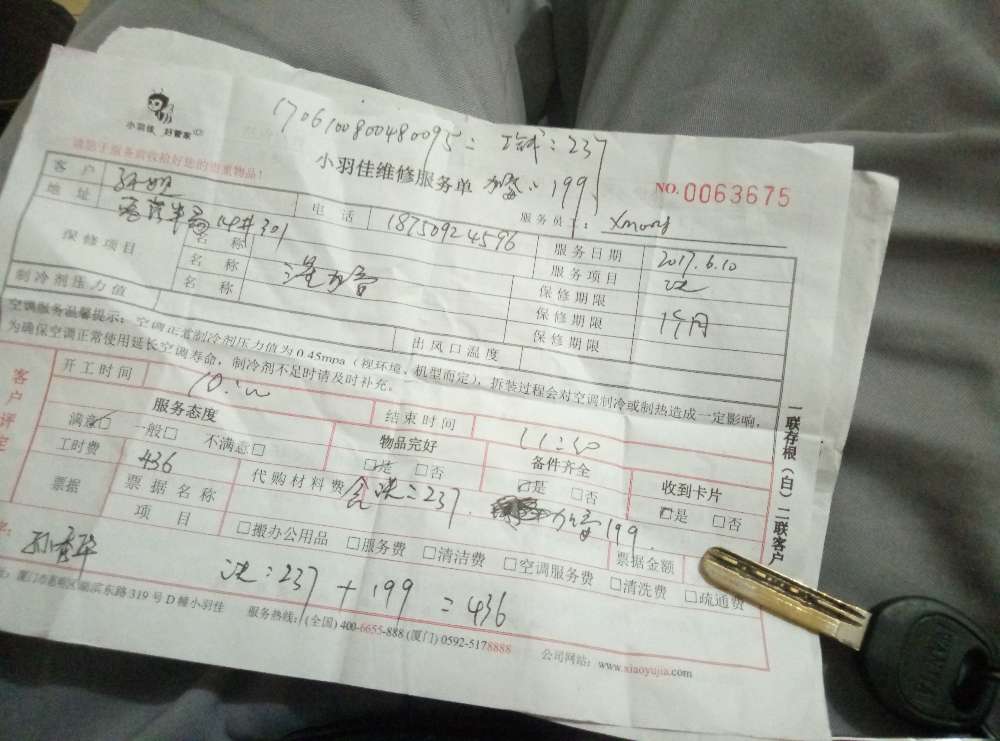 小羽佳 好管家
1706100800480095 = 237
请您于服务前收拾好您的贵重物品!
小羽佳维修服务单 199
NO.0063675
服务员
客户
电话 18750924596
服务日期 2017.6.10
地址 14井301
服务项目
保修项目
名称
保修期限
名称
保修期限 1个月
名称
保修期限
制冷剂压力值
出风口温度
空调服务温馨提示:空调正常制冷剂压力值为0.45mpa(视环境、机型而定),拆装过程会对空调制冷或制热造成一定影响,
为确保空调正常使用延长空调寿命,制冷剂不足时请及时补充。
客户评定
开工时间 10:00
结束时间 11:50
服务态度
物品完好
备件齐全
收到卡片
满意□ 一般□ 不满意□
□是 □否
□是 □否
□是 □否
工时费 436
代购材料费 237 199
票据
票据名称
项目
□搬办公用品 □服务费 □清洁费 □空调服务费 □清洗费 □疏通费
票据金额
237 + 199 = 436
东路319号D幢小羽佳
服务热线:(全国)400-6655-888(厦门)0592-5178888
公司网站:www.xiaoyujia.com
一联存根(白)二联客户